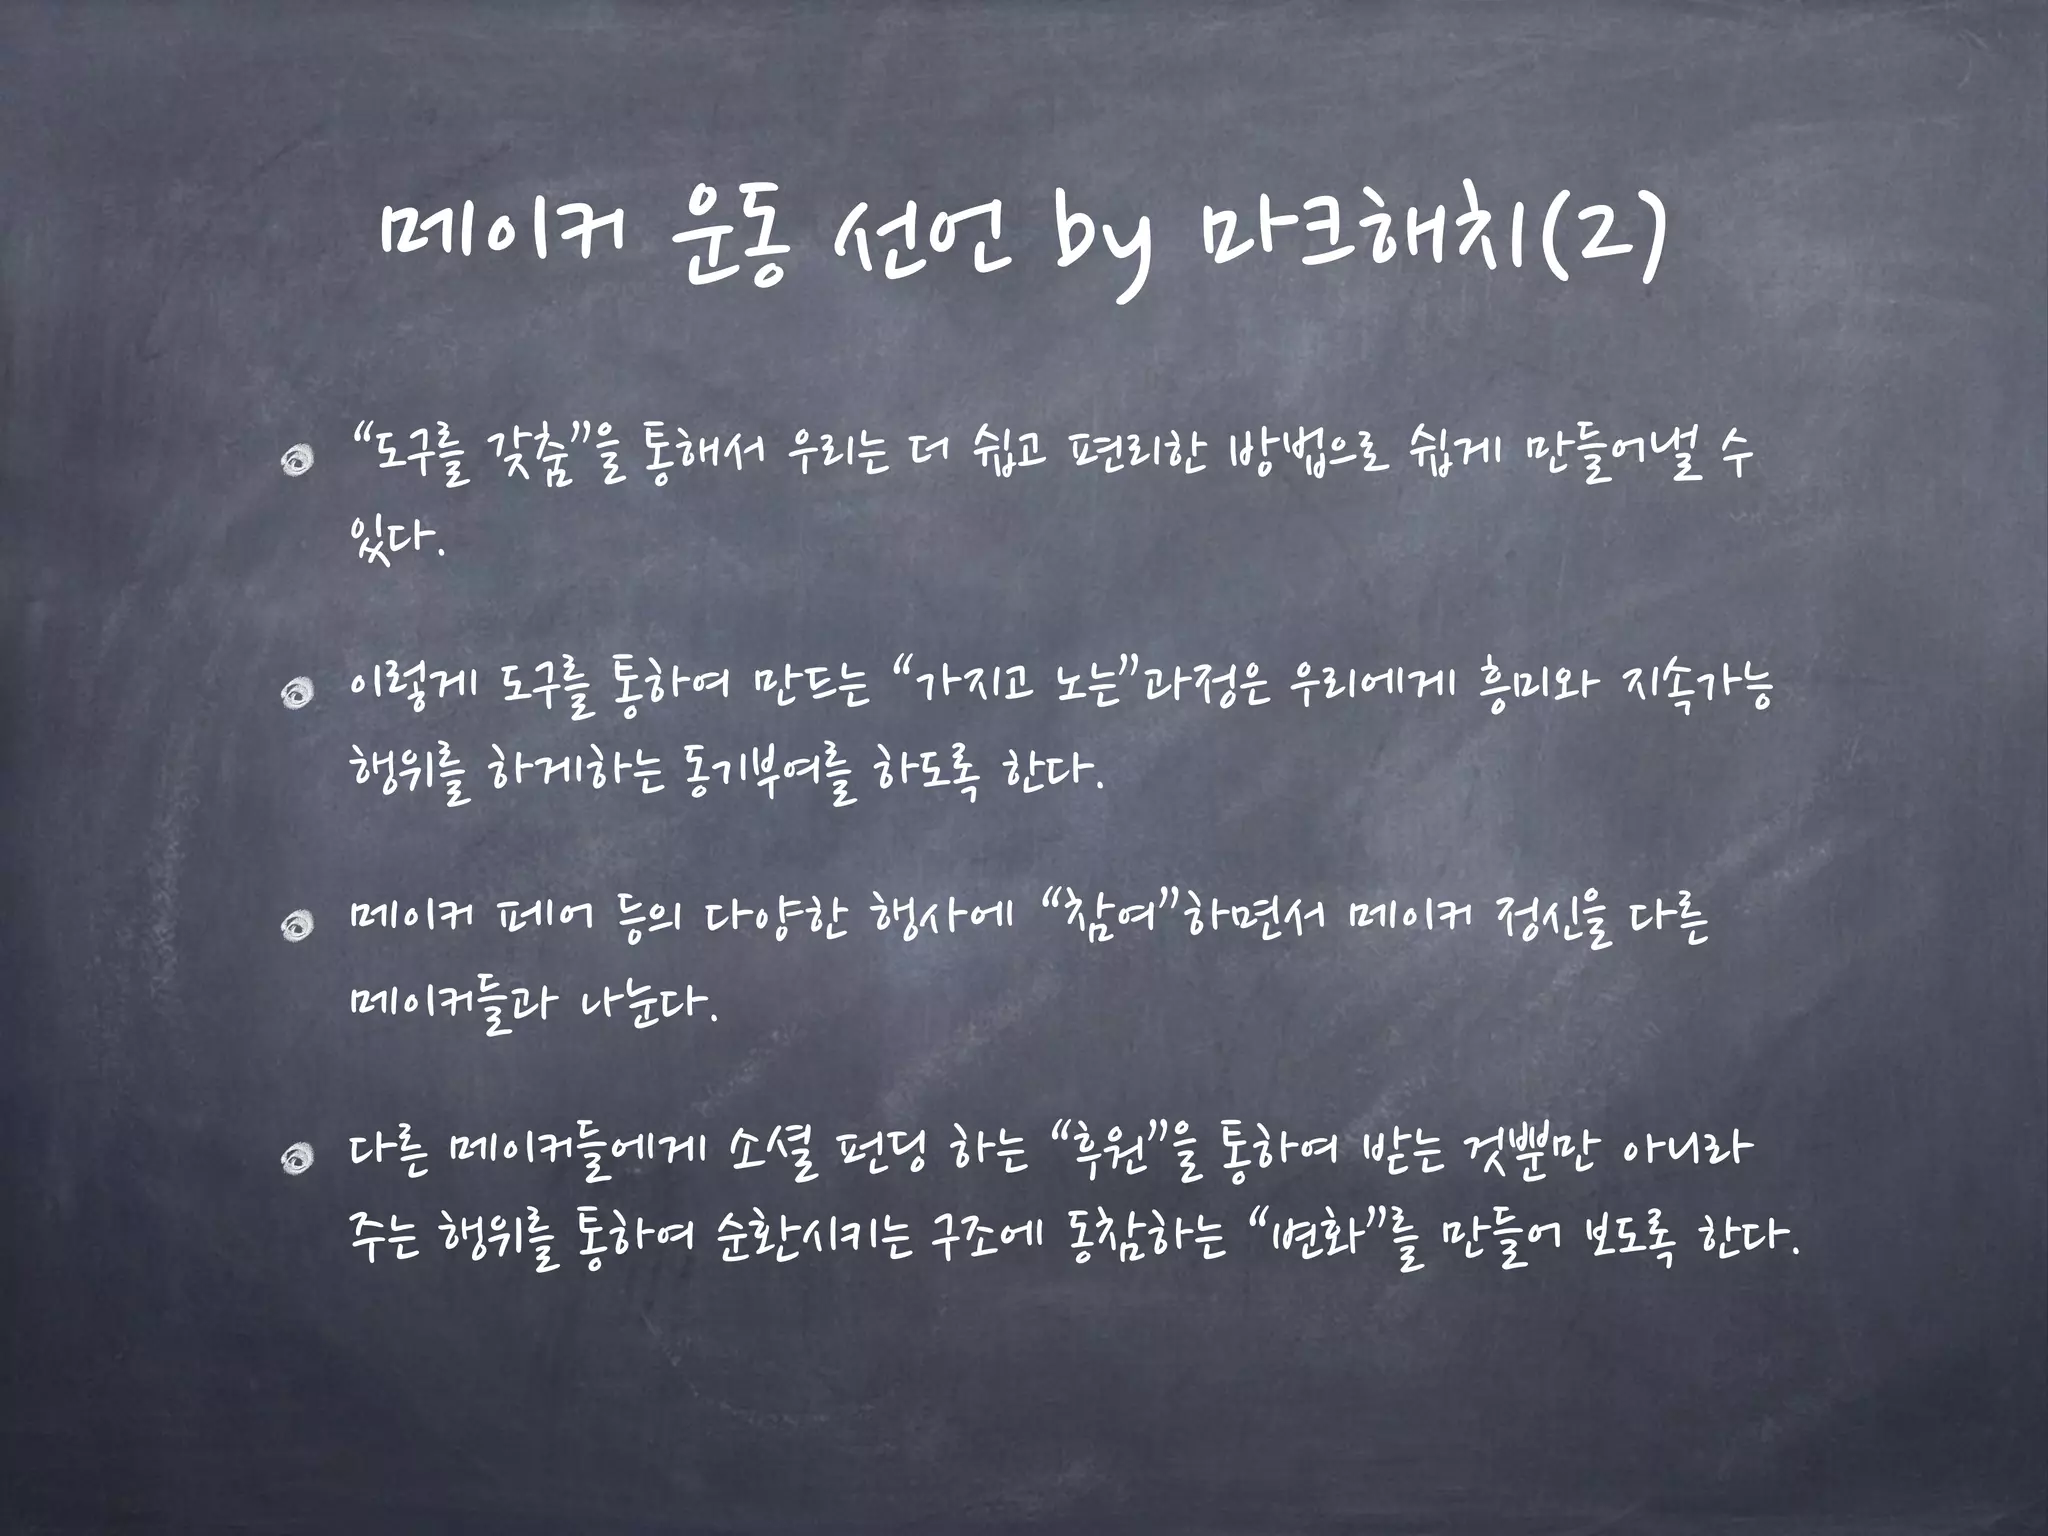 메이커 운동 선언 by 마크해치(2)
“도구를 갖춤”을 통해서 우리는 더 쉽고 편리한 방법으로 쉽게 만들어낼 수
있다.
이렇게 도구를 통하여 만드는 “가지고 노는”과정은 우리에게 흥미와 지속가능
행위를 하게하는 동기부여를 하도록 한다.
메이커 페어 등의 다양한 행사에 “참여”하면서 메이커 정신을 다른
메이커들과 나눈다.
다른 메이커들에게 소셜 펀딩 하는 “후원”을 통하여 받는 것뿐만 아니라
주는 행위를 통하여 순환시키는 구조에 동참하는 “변화”를 만들어 보도록 한다.